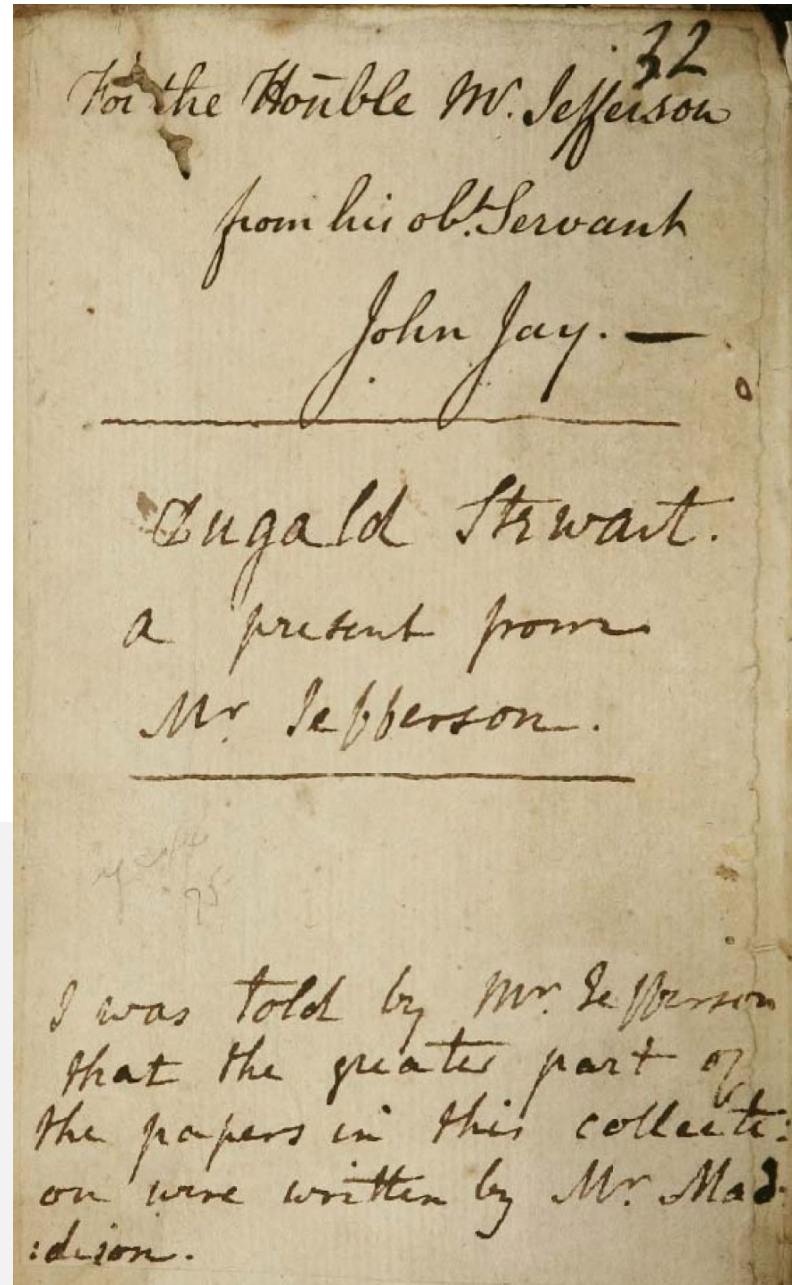 32
For the Honble Mr. Jefferson
from his obt. Servant
John Jay. —
Dugald Stewart.
a present from
Mr Jefferson.
75
I was told by Mr. Jefferson
that the greater part of
the papers in this collecti:
on were written by Mr. Mad
:dison.